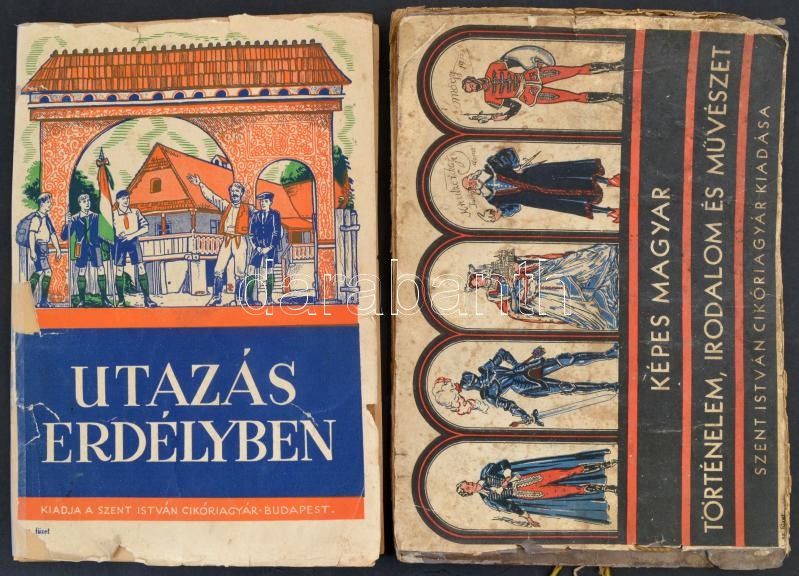 UTAZÁS
ERDÉLYBEN
KIADJA A SZENT ISTVÁN CIKÓRIAGYÁR·BUDAPEST.
füzet
KÉPES MAGYAR
TÖRTÉNELEM, IRODALOM ÉS MŰVÉSZET
SZENT ISTVÁN CIKÓRIAGYÁR KIADÁSA
darabanth